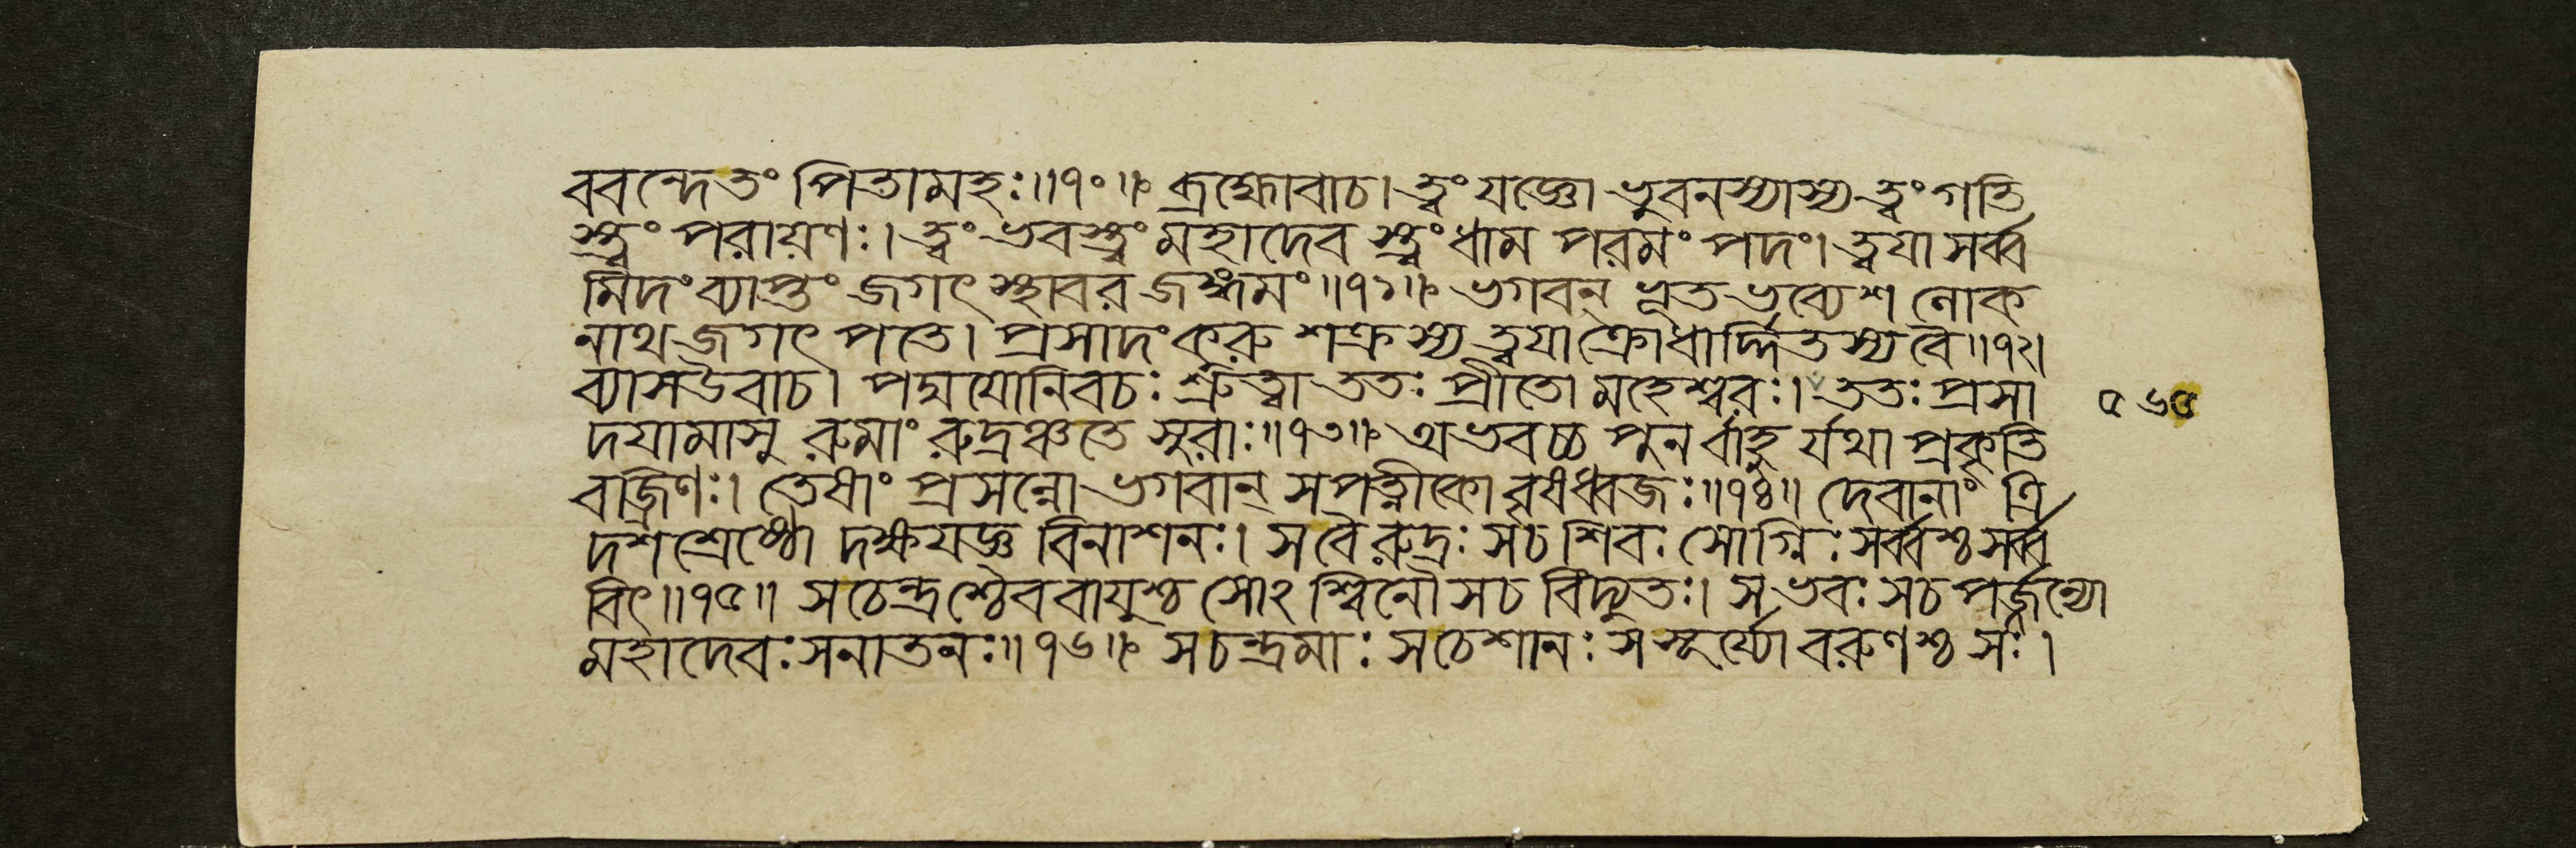 ববন্দে তং পিতামহঃ॥৭০॥ ব্রহ্মোবাচ। ত্বং যজ্ঞো ভুবনস্যাস্য ত্বং গতি
স্ত্বং পরায়ণঃ। ত্বং ভবস্ত্বং মহাদেব স্ত্বং ধাম পরমং পদং। ত্বযা সর্ব্ব
মিদং ব্যাপ্তং জগৎ স্থাবর জঙ্গমং॥৭১॥ ভগবন্ ভূত ভব্যেশ লোক
নাথ জগৎ পতে। প্রসাদং করু শক্রস্য ত্বযা ক্রোধার্দ্দিতস্য বৈ॥৭২।
ব্যাসউবাচ। পদ্মযোনিবচঃ শ্রুত্বা ততঃ প্রীতো মহেশ্বরঃ। ততঃ প্রসা
দযামাসু রুমাং রুদ্রঞ্চ তে সুরাঃ॥৭৩॥ অভবচ্চ পুন র্বাহু র্যথা প্রকৃতি
বজ্রিণঃ। তেষাং প্রসন্নো ভগবান্ সপত্নীকো বৃষধ্বজঃ॥৭৪॥ দেবানাং ত্রি
দশ শ্রেষ্ঠো দক্ষযজ্ঞ বিনাশনঃ। স বৈ রুদ্রঃ স চ শিবঃ সোগ্নিঃ সর্ব্বশ্চ সর্ব্ব
বিৎ॥৭৫॥ স চেন্দ্রশ্চৈব বাযুশ্চ সোঽ শ্বিনৌ স চ বিদ্যুতঃ। স ভবঃ স চ পর্জ্জন্যো
মহাদেবঃ সনাতনঃ॥৭৬॥ স চন্দ্রমাঃ স চেশানঃ স সূর্য্যো বরুণশ্চ সঃ।
৫৬৫